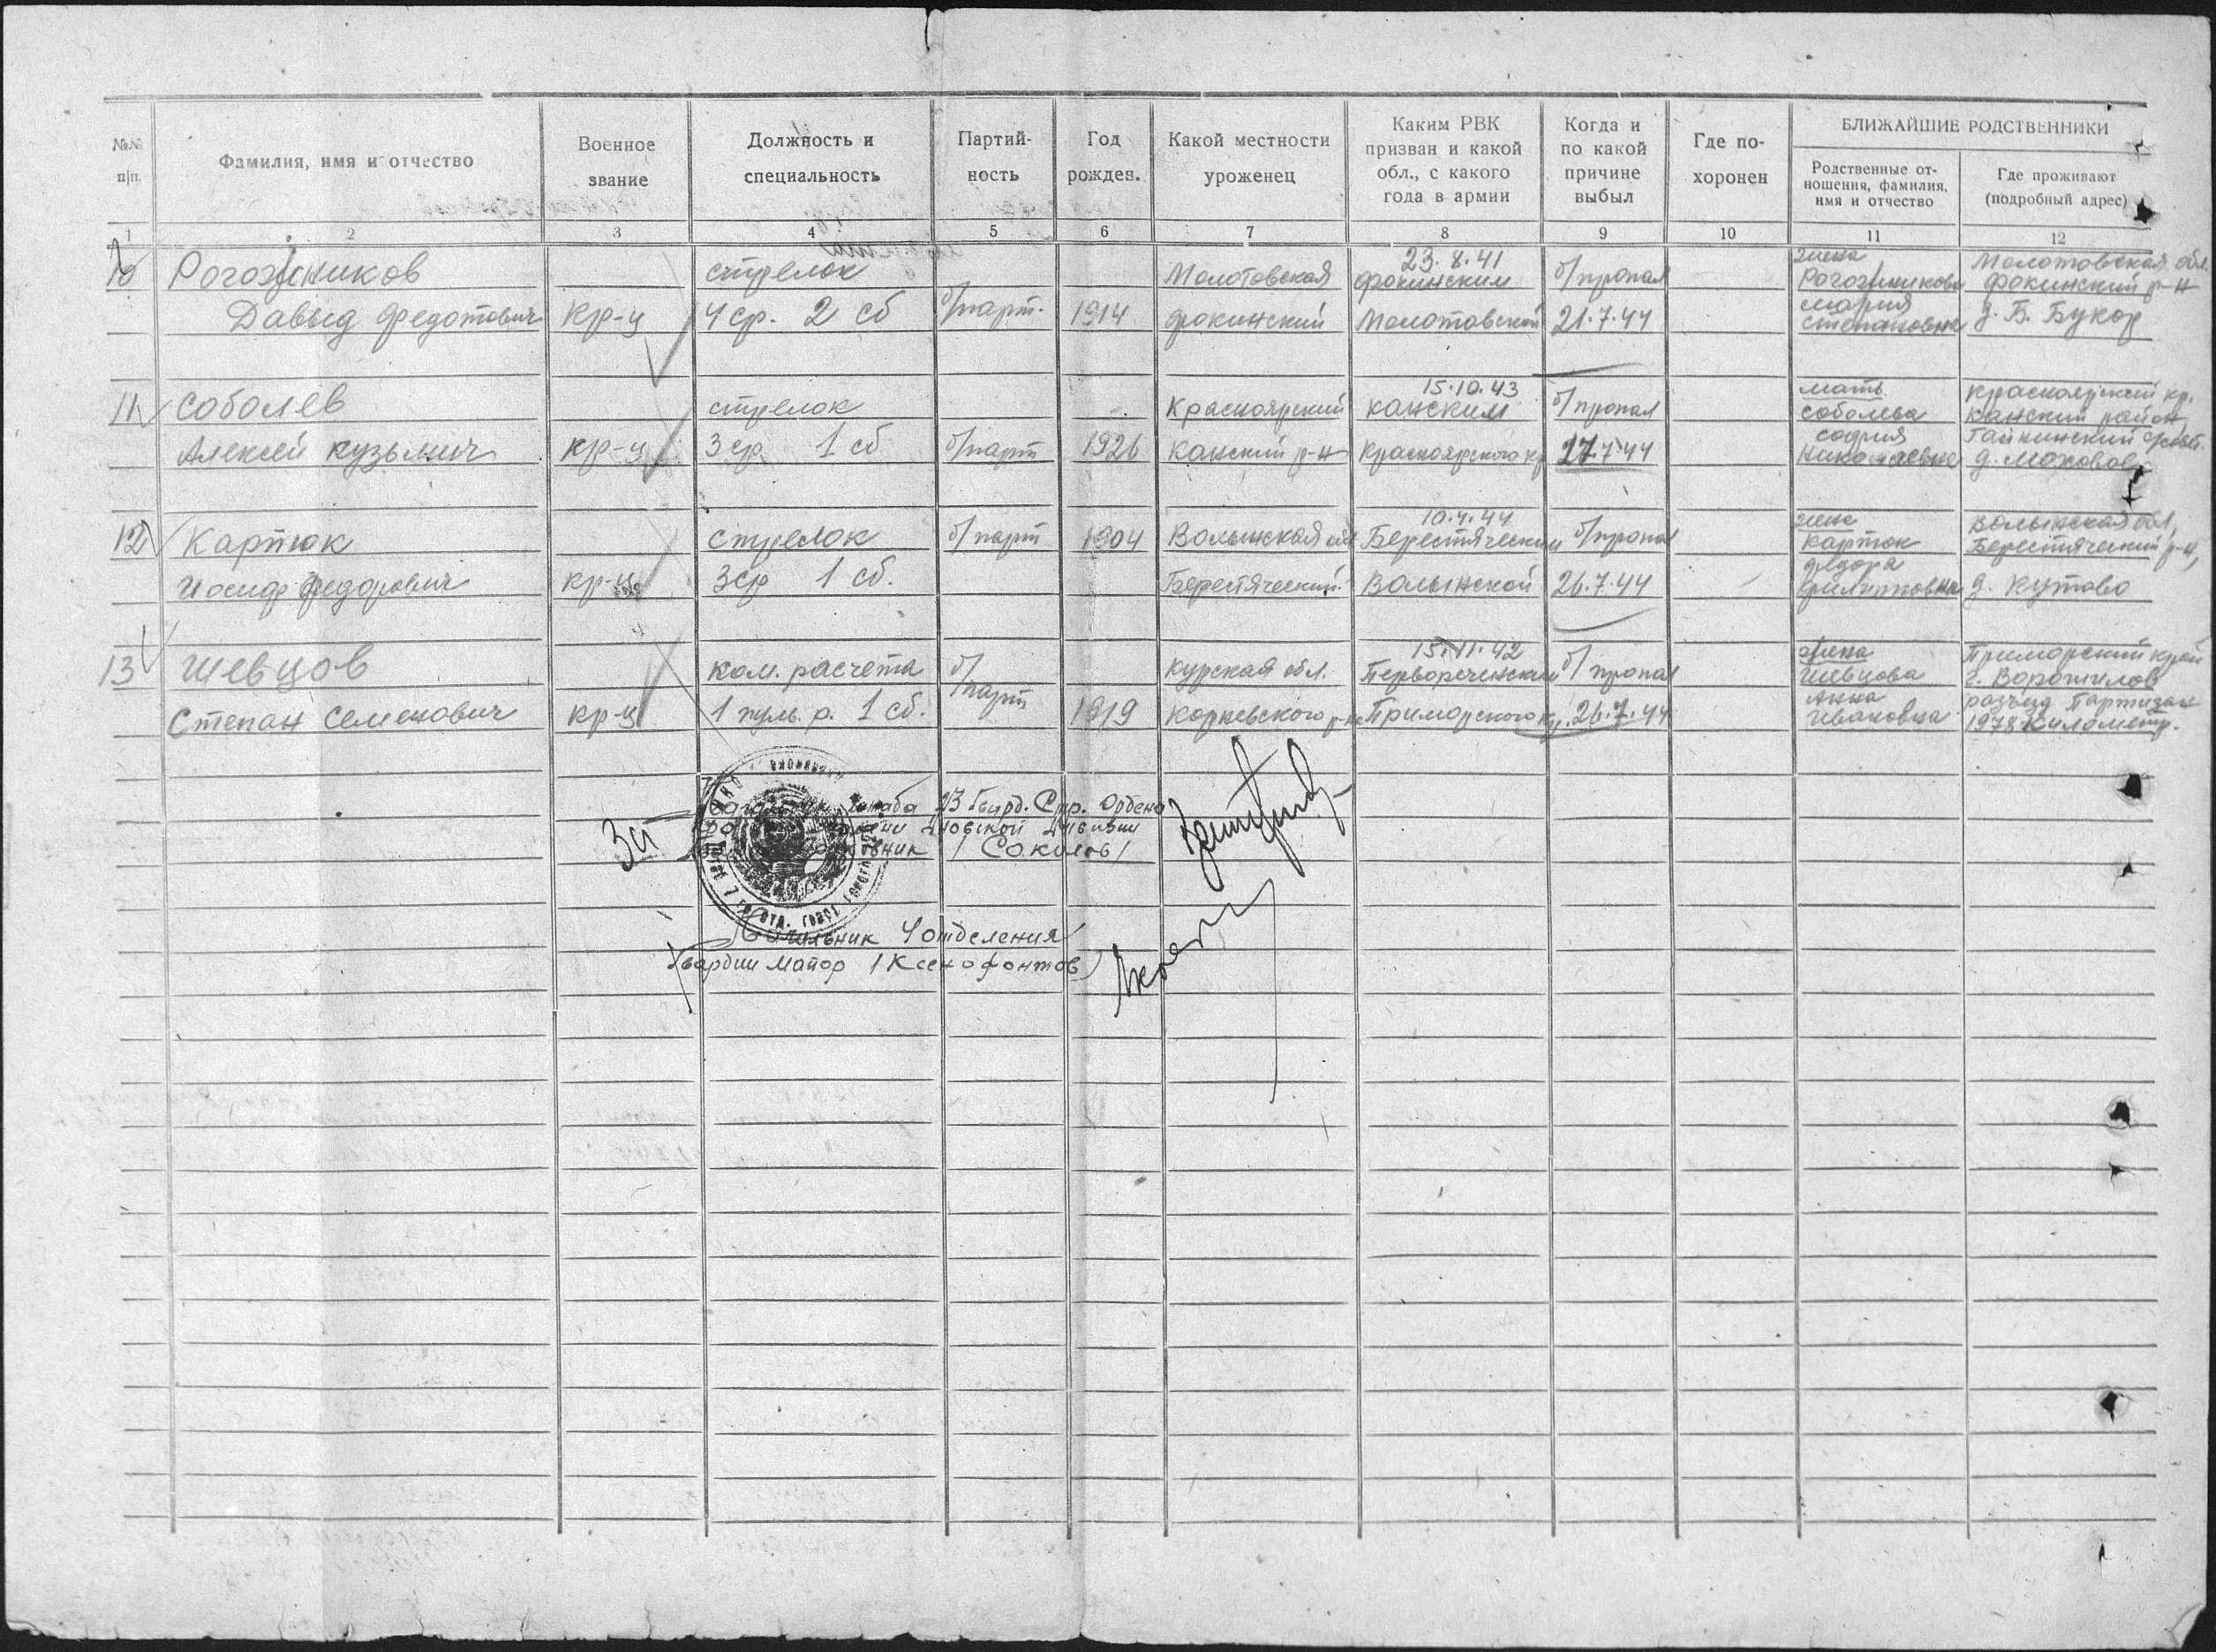 №№ п|п.
Фамилия, имя и отчество
Военное звание
Должность и специальность
Партий-
ность
Год рожден.
Какой местности уроженец
Каким РВК
призван и какой
обл., с какого
года в армии
Когда и
по какой
причине
выбыл
Где по-
хоронен
БЛИЖАЙШИЕ РОДСТВЕННИКИ
Родственные от-
ношения, фамилия,
имя и отчество
Где проживают
(подробный адрес)
1 2 3 4 5 6 7 8 9 10 11 12
10 Рогожников
Давыд Федотович
кр-ц
стрелок
4 ср. 2 сб
б/парт.
1914
Молотовская
Фокинский
23.8.41
Фокинским
Молотовской
б/пропал
21.7.44
жена
Рогожникова
Мария
Степановна
Молотовская обл.
Фокинский р-н
д. Б. Букор
11 Соболев
Алексей Кузьмич
кр-ц
стрелок
3 ср 1 сб
б/парт
1926
Красноярский
Канский р-н
15.10.43
Канским
Красноярского кр
б/пропал
27.7.44
мать
Соболева
София
Николаевна
Красноярский кр.
Канский район,
д. Мохово
12 Картюк
Иосиф Федорович
кр-ц
стрелок
3 ср 1 сб.
б/парт
1904
Волынская обл
Берестяческий
10.4.44
Берестяческим
Волынской
б/пропал
26.7.44
жена
Картюк
Федора
Филиповна
Волынская обл,
Берестяческий р-н,
д. Кутово
13 Шевцов
Степан Семенович
кр-ц
ком. расчета
1 пуль. р. 1 сб.
б/
парт
1919
Курская обл.
Корневского р-на
15.11.42
Первореченским
Приморского кр.
б/пропал
26.7.44
жена
Шевцова
Анна
Ивановна
Приморский край
г. Ворошилов
разъезд Партизан
1978 километр.
За
штаба 23 Гвард. Стр. Ордена
новской дивизии
/Соколов/
Начальник 4 отделения
Гвардии майор /Ксенофонтов/